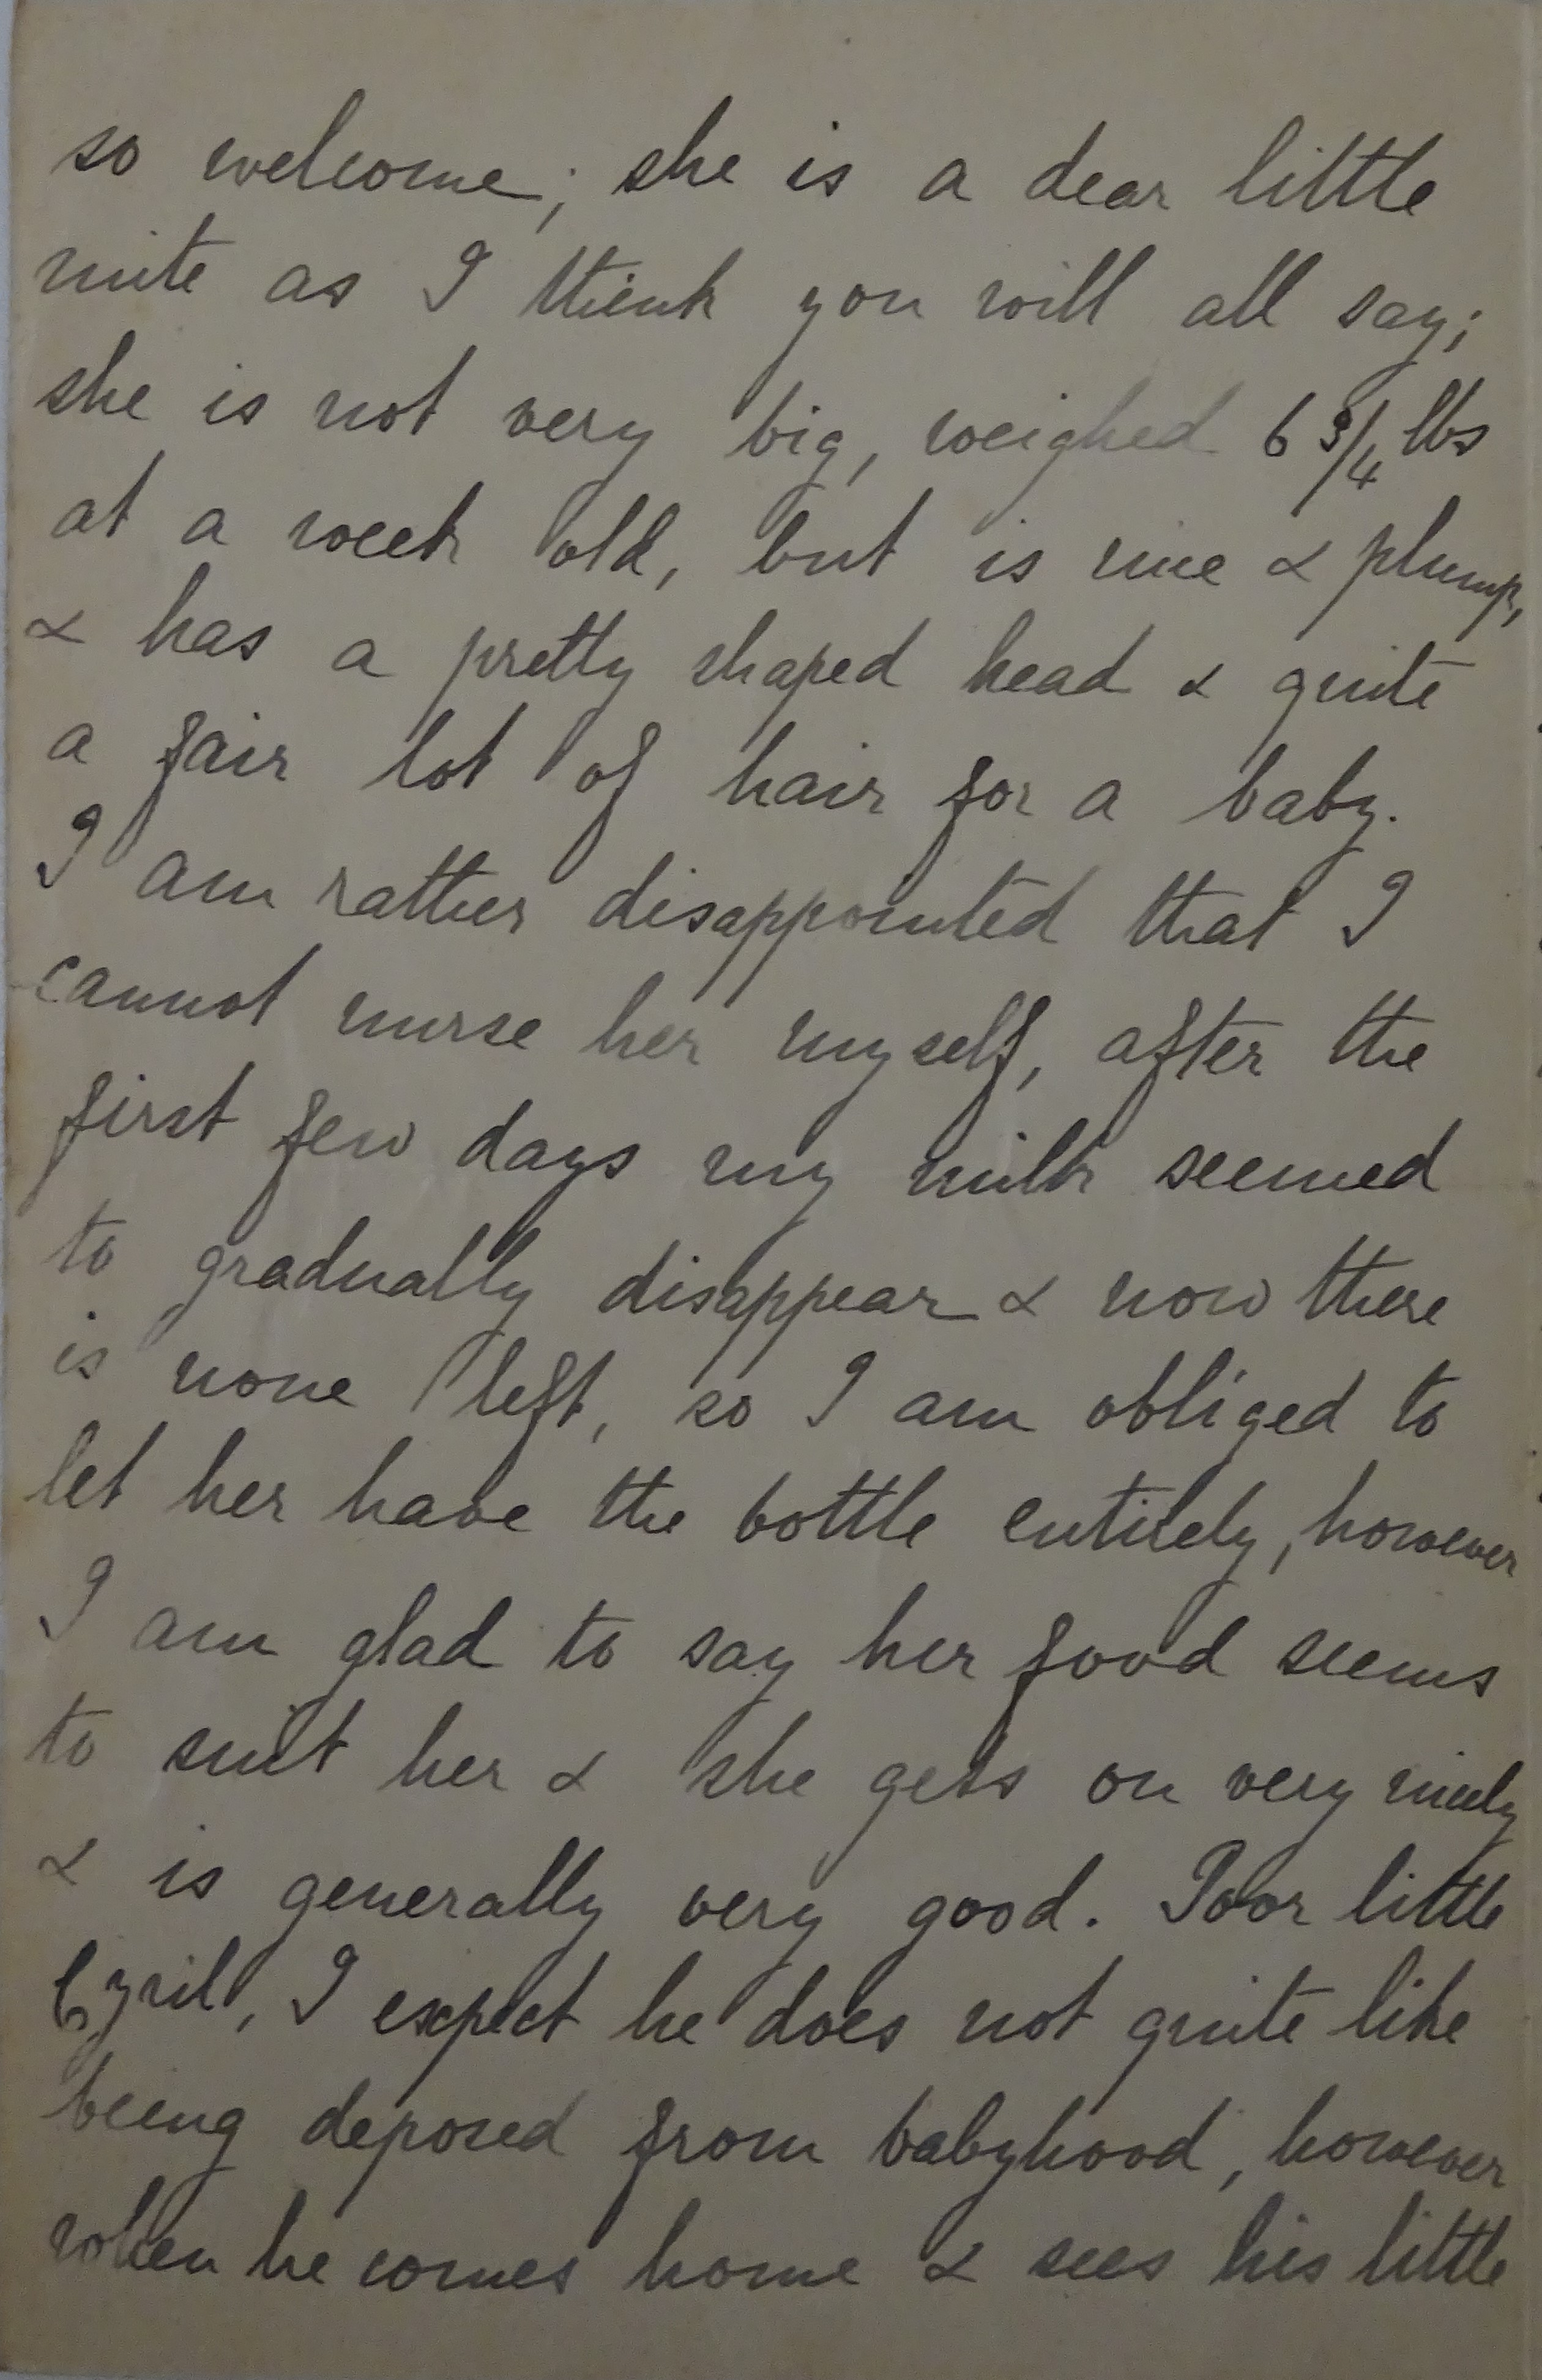 so welcome; she is a dear little
mite as I think you will all say;
she is not very big, weighed 6 3/4 lbs
at a week old, but is nice & plump,
& has a pretty shaped head & quite
a fair lot of hair for a baby.
I am rather disappointed that I
cannot nurse her myself, after the
first few days my milk seemed
to gradually disappear & now there
is none left, so I am obliged to
let her have the bottle entirely, however
I am glad to say her food seems
to suit her & she gets on very nicely
& is generally very good. Poor little
Cyril, I expect he does not quite like
being deposed from babyhood, however
when he comes home & sees his little